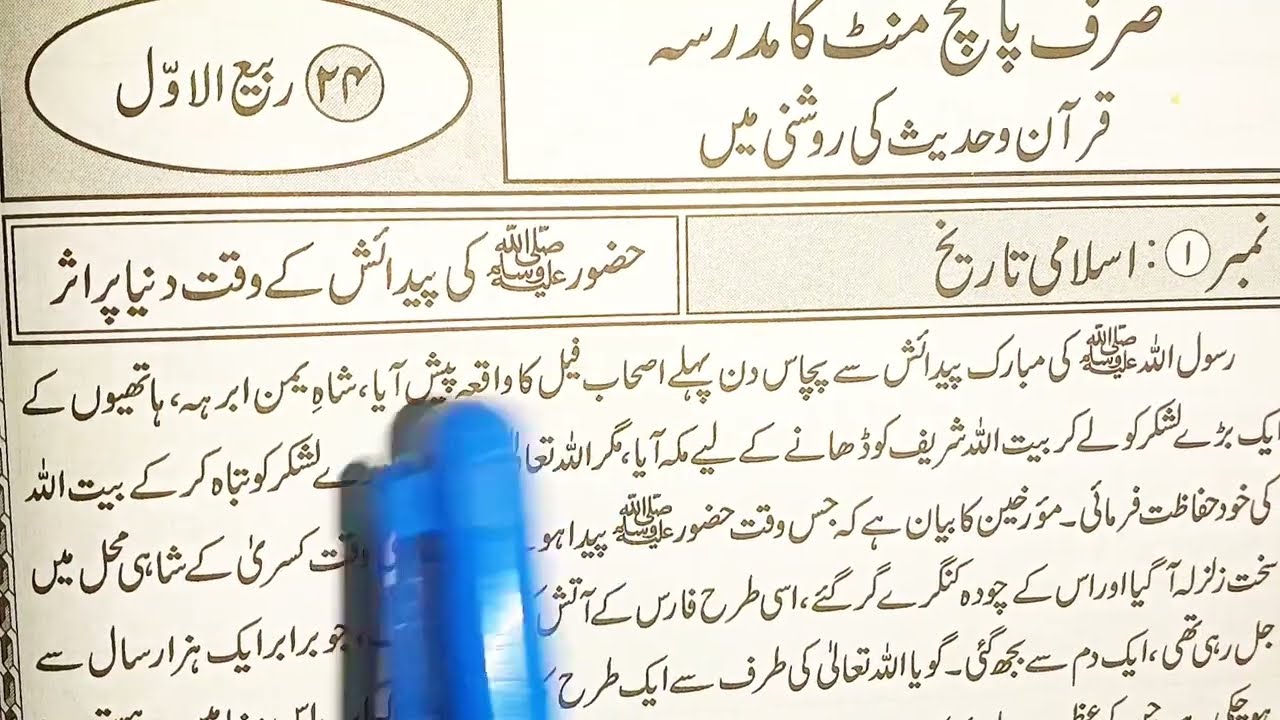 صرف پانچ منٹ کا مدرسہ
قرآن وحدیث کی روشنی میں
۲۴ ربیع الاوّل
نمبر ۱: اسلامی تاریخ
حضور ﷺ کی پیدائش کے وقت دنیا پر اثر
رسول اللہ ﷺ کی مبارک پیدائش سے پچاس دن پہلے اصحاب فیل کا واقعہ پیش آیا، شاہِ یمن ابرہہ، ہاتھیوں کے
ایک بڑے لشکر کو لے کر بیت اللہ شریف کو ڈھانے کے لیے مکہ آیا، مگر اللہ لشکر کو تباہ کر کے بیت اللہ
کی خود حفاظت فرمائی۔ مؤرخین کا بیان ہے کہ جس وقت حضور ﷺ پیدا وقت کسریٰ کے شاہی محل میں
سخت زلزلہ آ گیا اور اس کے چودہ کنگرے گر گئے، اسی طرح فارس کے آتش جو برابر ایک ہزار سال سے
جل رہی تھی، ایک دم سے بجھ گئی۔ گویا اللہ تعالیٰ کی طرف سے ایک طرح